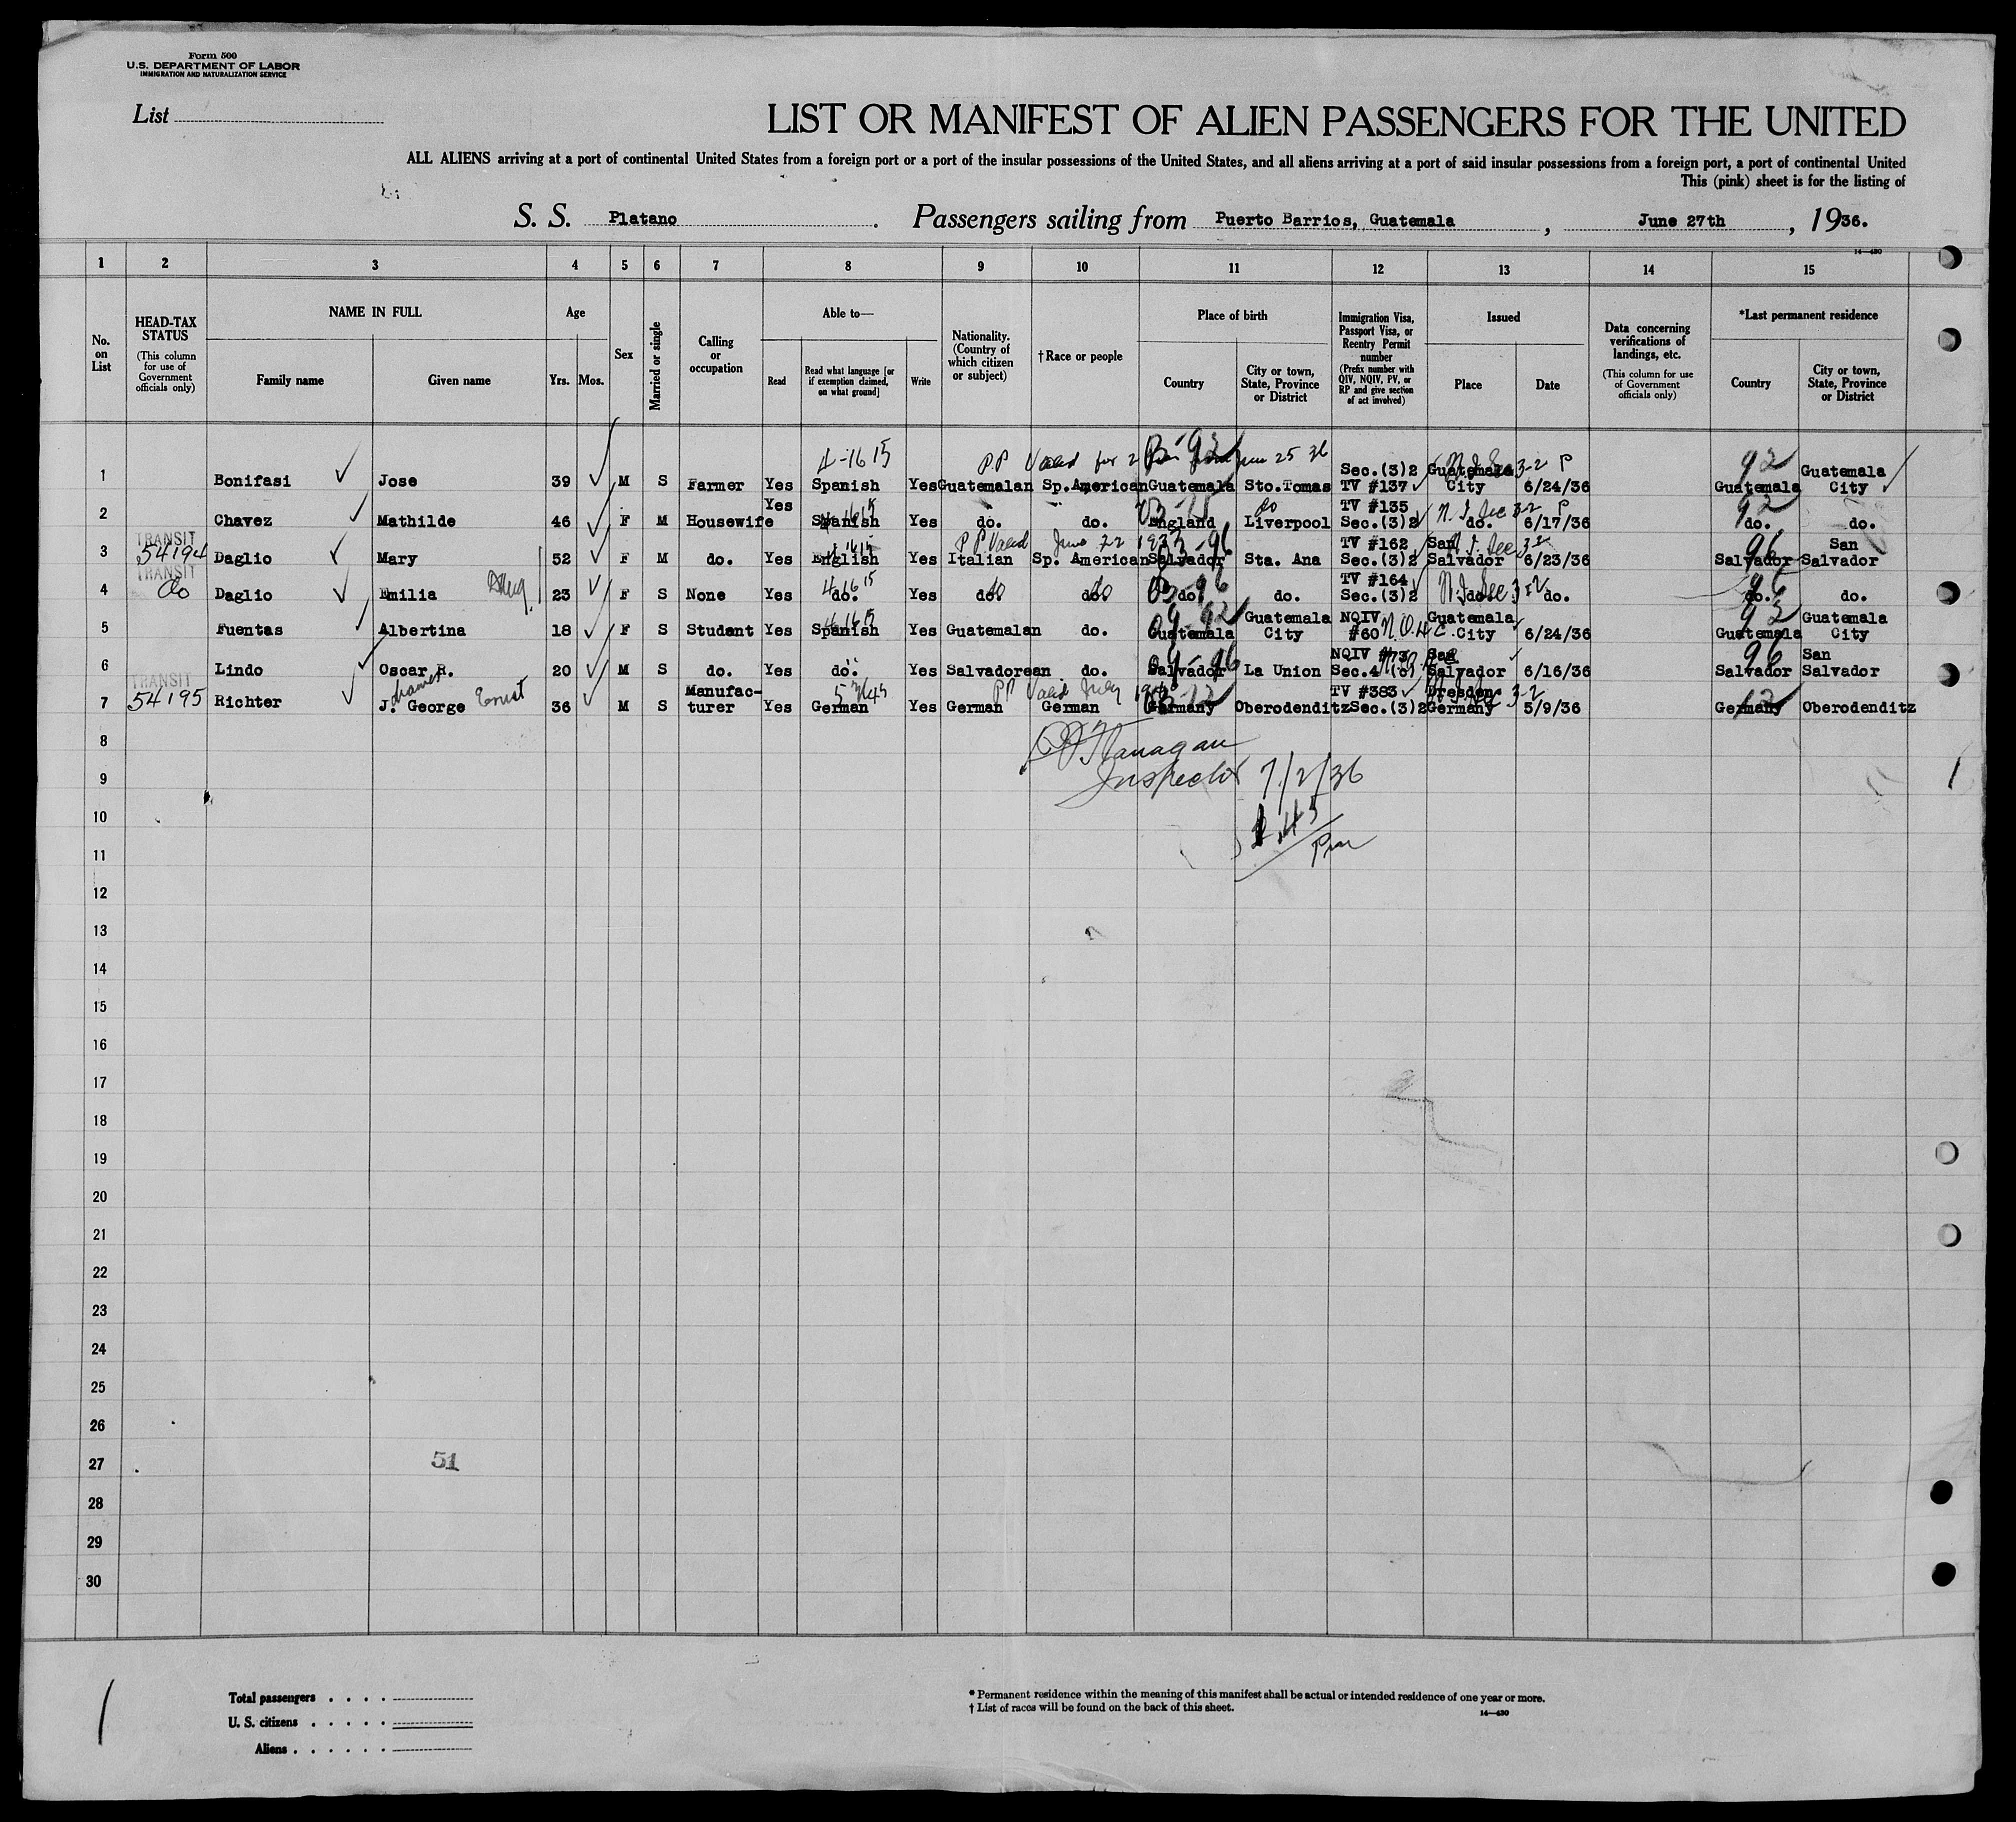 Form 500
U.S. DEPARTMENT OF LABOR
IMMIGRATION AND NATURALIZATION SERVICE
List
LIST OR MANIFEST OF ALIEN PASSENGERS FOR THE UNITED
ALL ALIENS arriving at a port of continental United States from a foreign port or a port of the insular possessions of the United States, and all aliens arriving at a port of said insular possessions from a foreign port, a port of continental United
This (pink) sheet is for the listing of
S. S. Platano. Passengers sailing from Puerto Barrios, Guatemala, June 27th, 1936.
14—430
1 2 3 4 5 6 7 8 9 10 11 12 13 14 15
No. on List
HEAD-TAX STATUS (This column for use of Government officials only)
NAME IN FULL
Family name Given name
Age
Yrs. Mos.
Sex
Married or single
Calling or occupation
Able to—
Read Read what language [or if exemption claimed, on what ground] Write
Nationality. (Country of which citizen or subject)
† Race or people
Place of birth
Country City or town, State, Province or District
Immigration Visa, Passport Visa, or Reentry Permit number (Prefix number with QIV, NQIV, PV, or RP and give section of act involved)
Issued
Place Date
Data concerning verifications of landings, etc. (This column for use of Government officials only)
*Last permanent residence
Country City or town, State, Province or District
4-16 15 PP Valid for 2 Jun 25 36 92
1 Bonifasi Jose 39 M S Farmer Yes Spanish Yes Guatemalan Sp.American Guatemala Sto.Tomas Sec.(3)2 TV #137 Guatemala City 3-2 P 6/24/36 Guatemala Guatemala City
2 Chavez Mathilde 46 F M Housewife Yes Spanish Yes do. do. England Liverpool TV #135 Sec.(3)2 do. 3-2 P 6/17/36 92 do. do.
TRANSIT
3 54194 Daglio Mary 52 F M do. Yes English Yes Italian Sp. American Salvador Sta. Ana TV #162 Sec.(3)2 San Salvador 6/23/36 96 Salvador San Salvador
PP Valid June 22 1937
TRANSIT
4 do Daglio Emilia Daug. 23 F S None Yes do. Yes do. do. do. do. TV #164 Sec.(3)2 do. do. 96 do. do.
5 Fuentas Albertina 18 F S Student Yes Spanish Yes Guatemalan do. Guatemala Guatemala City NQIV #60 Guatemala City 6/24/36 Guatemala Guatemala City
6 Lindo Oscar R. 20 M S do. Yes do. Yes Salvadorean do. Salvador La Union NQIV #73 Sec.4 San Salvador 6/16/36 96 Salvador San Salvador
TRANSIT
7 54195 Richter J. George Ernst 36 M S Manufacturer Yes German Yes German German Germany Oberodenditz TV #383 Sec.(3)2 Dresden Germany 3-2 5/9/36 12 Germany Oberodenditz
8 Flanagan
9 Inspector 7/2/36
10
11
12
13
14
15
16
17
18
19
20
21
22
23
24
25
26
27 51
28
29
30
Total passengers . . . .
U. S. citizens . . . . .
Aliens . . . . . .
* Permanent residence within the meaning of this manifest shall be actual or intended residence of one year or more.
† List of races will be found on the back of this sheet.
14—430